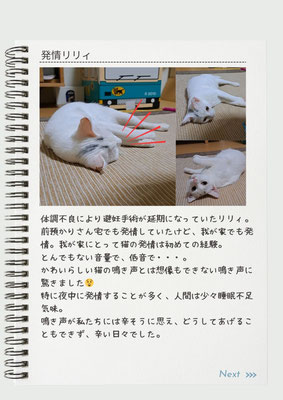 発情リリィ
体調不良により避妊手術が延期になっていたリリィ。
前預かりさん宅でも発情していたけど、我が家でも発
情。我が家にとって猫の発情は初めての経験。
とんでもない音量で、低音で・・・。
かわいらしい猫の鳴き声とは想像もできない鳴き声に
驚きました😲
特に夜中に発情することが多く、人間は少々睡眠不足
気味。
鳴き声が私たちには辛そうに思え、どうしてあげるこ
ともできず、辛い日々でした。
Next >>>